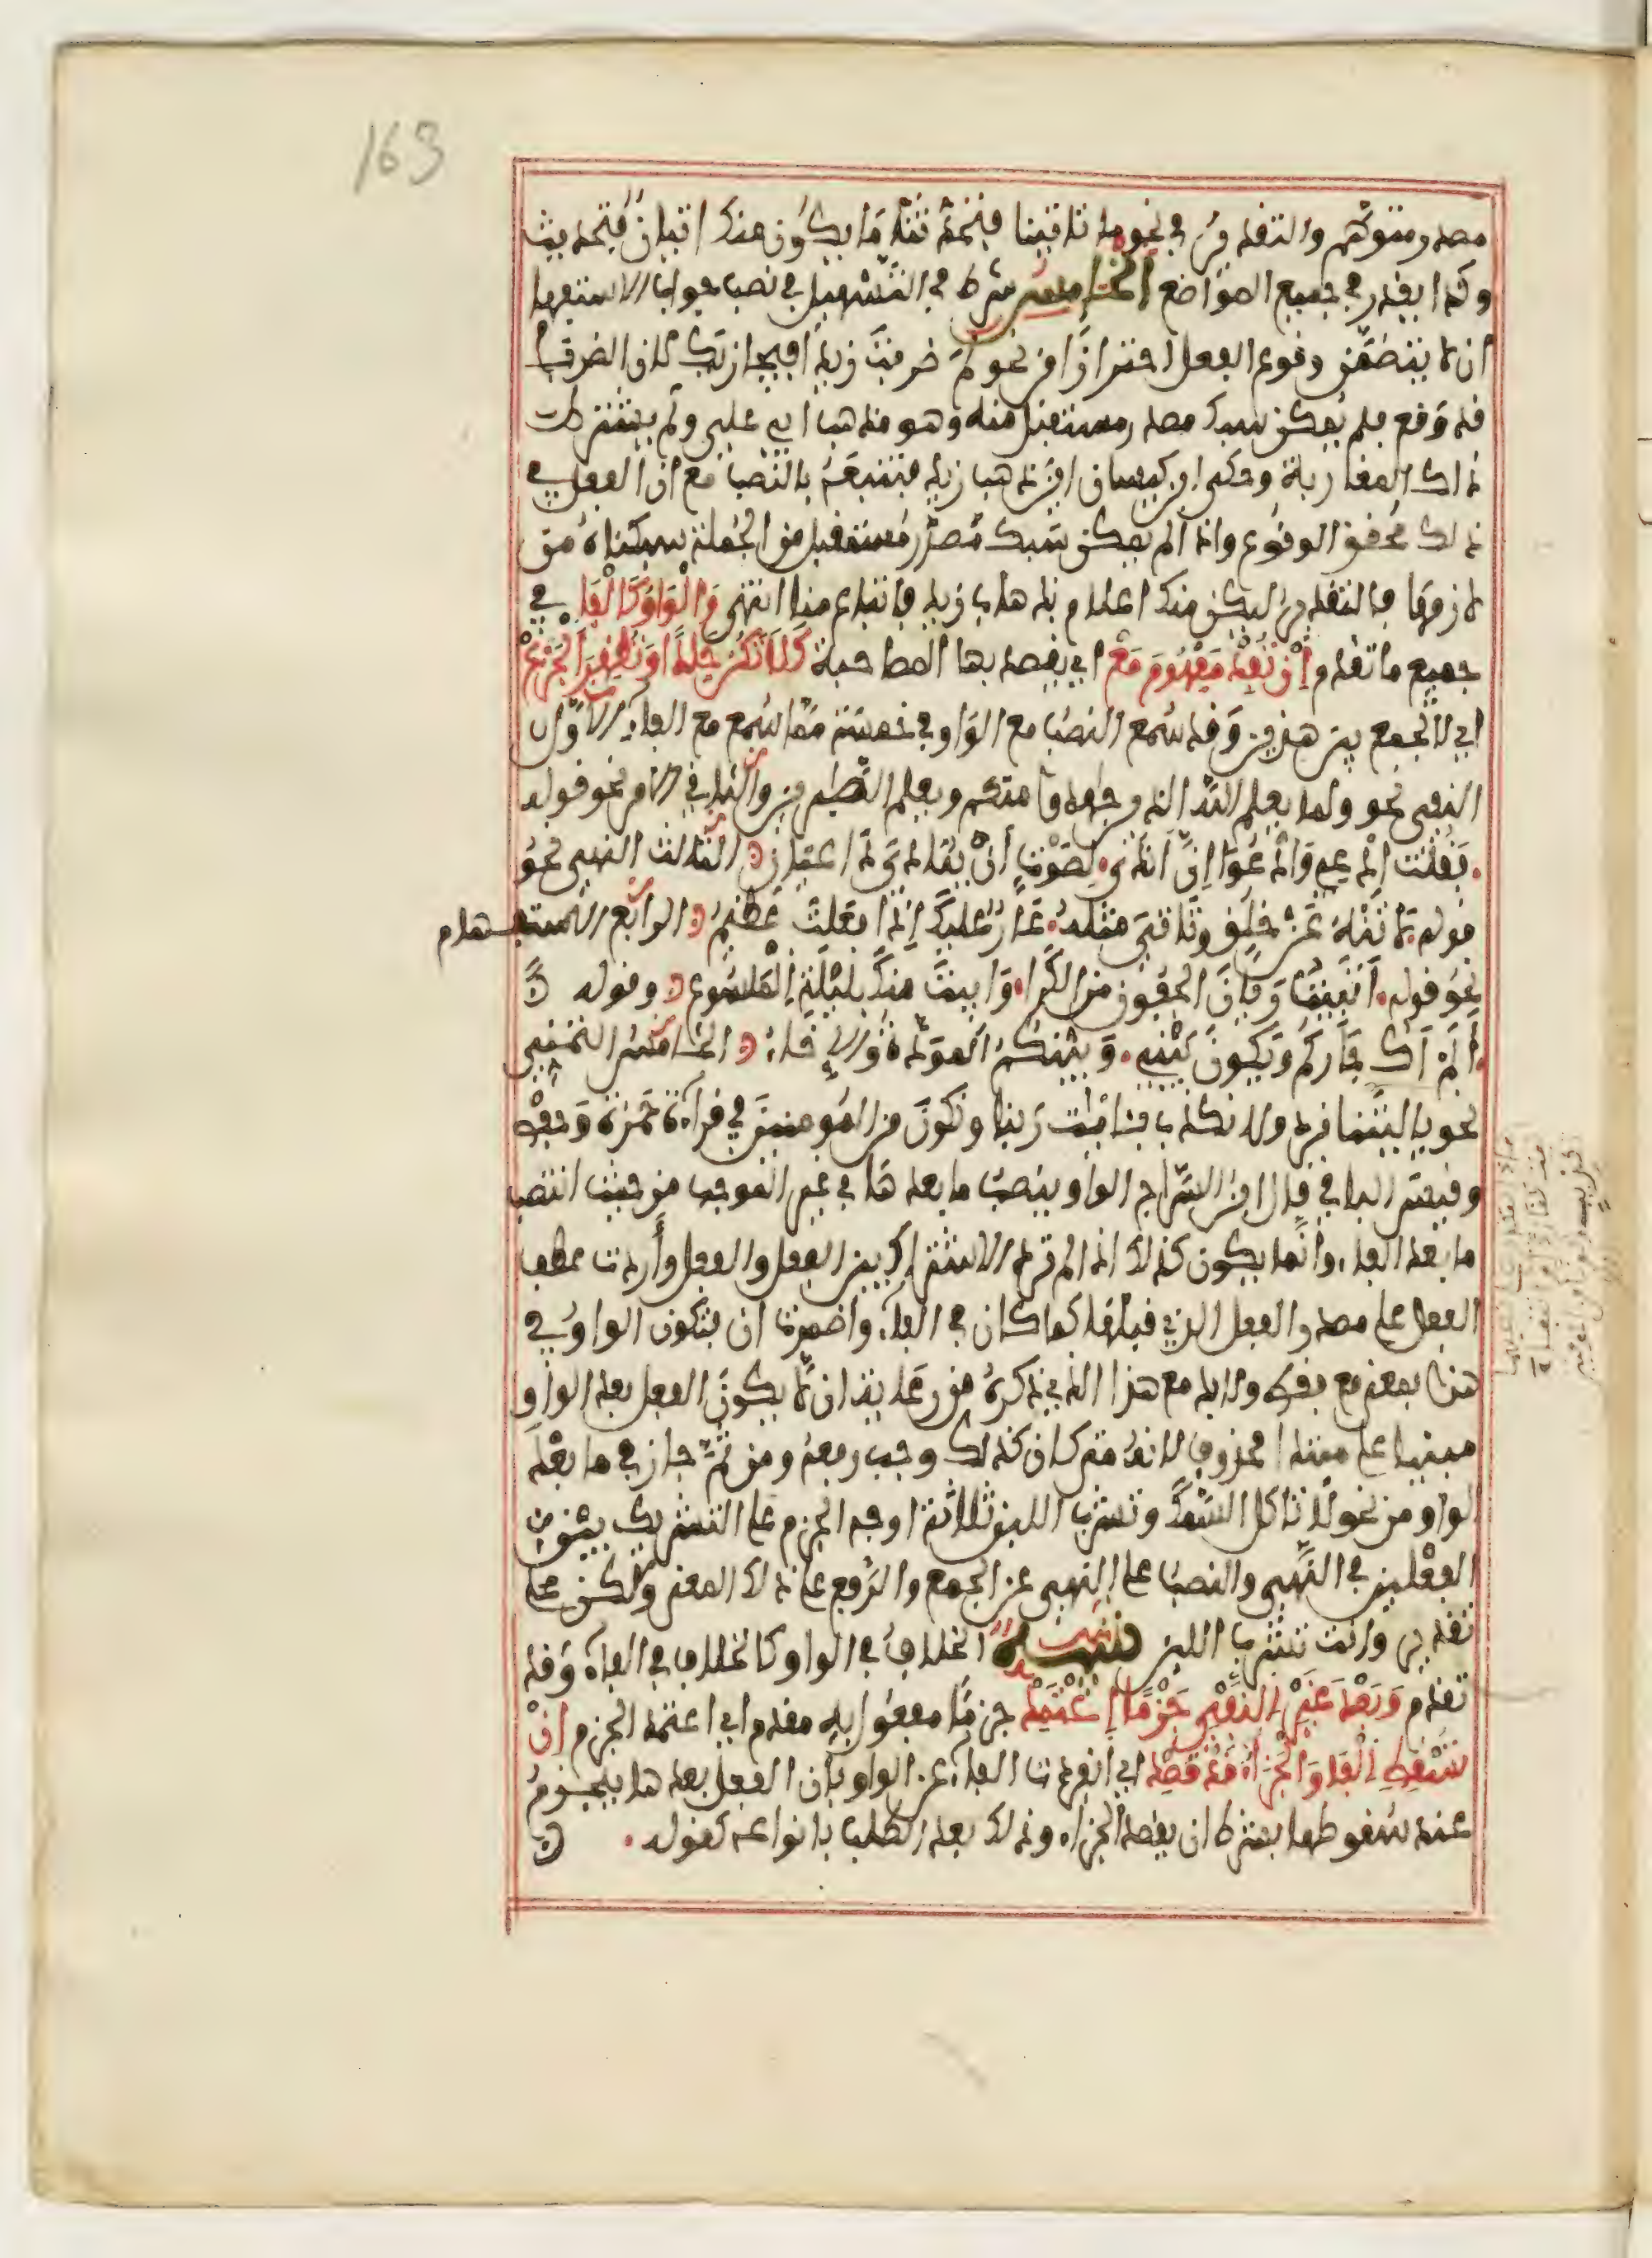 163
مصدر متوهم والتقدير في نحو ما تاتينا فتحدثنا ما يكون منك اتيان فتحديث
وكذا يقدر في جميع المواضع الخامس شرط في التسهيل في نصب جواب الاستفهام
ان لا يتضمن وقوع الفعل احترازا من نحو لم ضربت زيدا فيجازيك لان الضرب
قد وقع فلم يمكن سبك مصدر مستقبل منه وهو مذهب ابي علي ولم يشترط
ذلك المغاربة وحكى ابن كيسان اين ذهب زيد فنتبعه بالنصب مع ان الفعل في
ذلك محقق الوقوع واذا لم يمكن سبك مصدر مستقبل من الجملة سبكناه من
لازمها فالتقدير ليكن منك اعلام بذهاب زيد فاتباع منا انتهى وَالْوَاوُ كَالْفَا في
جميع ما تقدم اِنْ تُفِدْ مَفْهُومَ مَعْ اي يقصد بها المصاحبة كَلَا تَكُنْ جَلْدًا وَتُظْهِرَ الْجَزَعْ
اي لا تجمع بين هذين وقد سمع النصب مع الواو في خمسة مما سمع مع الفاء الاول
النفي نحو ولما يعلم الله الذين جاهدوا منكم ويعلم الصابرين والثاني الامر نحو قوله
فقلت ادعي وادعو ان اندى لصوت ان ينادي داعيان الثالث النهي نحو
قوله لا تنه عن خلق وتاتي مثله عار عليك اذا فعلت عظيم الرابع الاستفهام
نحو قوله اتبيت ريان الجفون من الكرا وابيت منك بليلة الملسوع وقوله
الم اك جاركم ويكون بيني وبينكم المودة والاخاء الخامس التمني
نحو يا ليتنا نرد ولا نكذب بئايات ربنا ونكون من المومنين في قراءة حمزة وحفص
وقيس الباقي قال ابن السراج الواو ينصب ما بعدها في غير الموجب من حيث انتصب
ما بعد الفاء وانما يكون كذلك اذا لم ترد الاشتراك بين الفعل والفعل وأردت عطف
الفعل على مصدر الفعل الذي قبلها كما كان في الفاء واضمرت ان وتكون الواو في
هذا بمعنى مع فقط ولا بد مع هذا الذي ذكره من رعاية ان لا يكون الفعل بعد الواو
مبنيا على مبتدا محذوف لانه متى كان كذلك وجب رفعه ومن ثم جاز في ما بعد
الواو من نحو لا تاكل السمك وتشرب اللبن ثلاثة اوجه الجزم على التشريك بين
الفعلين في النهي والنصب على النهي عن الجمع والرفع على ذلك المعنى ولكن على
تقدير وانت تشرب اللبن تنبيه الخلاف في الواو كالخلاف في الفاء وقد
تقدم وَبَعْدَ غَيْرِ النَّفْيِ جَزْمًا اعْتَمِدْ جزما مفعول به مقدم اي اعتمد الجزم اِنْ
تَسْقُطِ الْفَا وَالْجَزَاءُ قَدْ قُصِدْ اي انفردت الفاء عن الواو بان الفعل بعدها ينجزم
عند سقوطها بشرط ان يقصد الجزاء وذلك بعد الطلب بانواعه كقوله